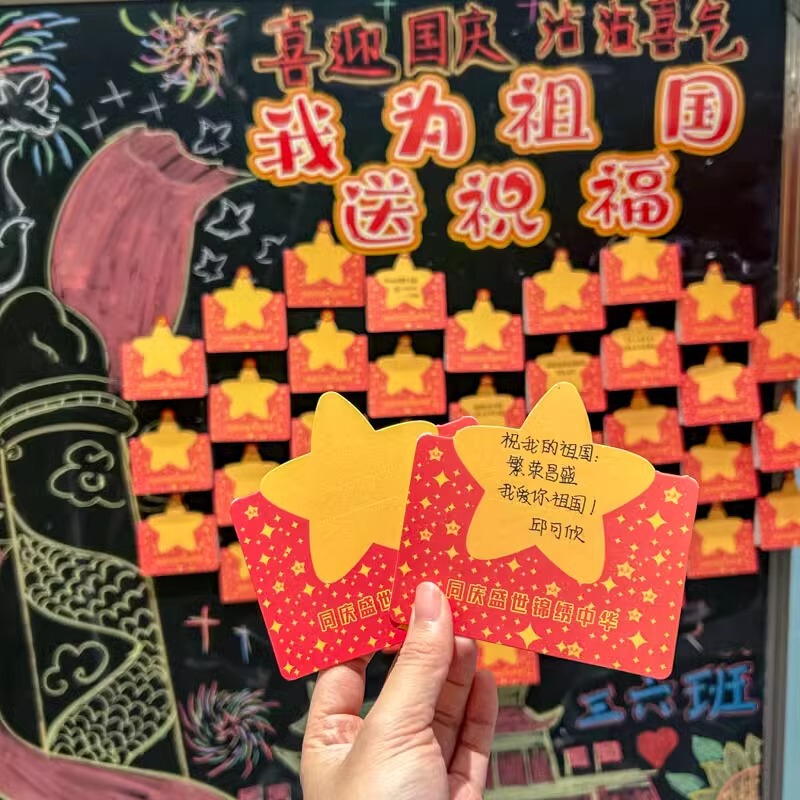 喜迎国庆 沾沾喜气
我为祖国
送祝福
祝我的祖国:
繁荣昌盛
我爱你祖国!
邱可欣
同庆盛世
同庆盛世锦绣中华
三六班